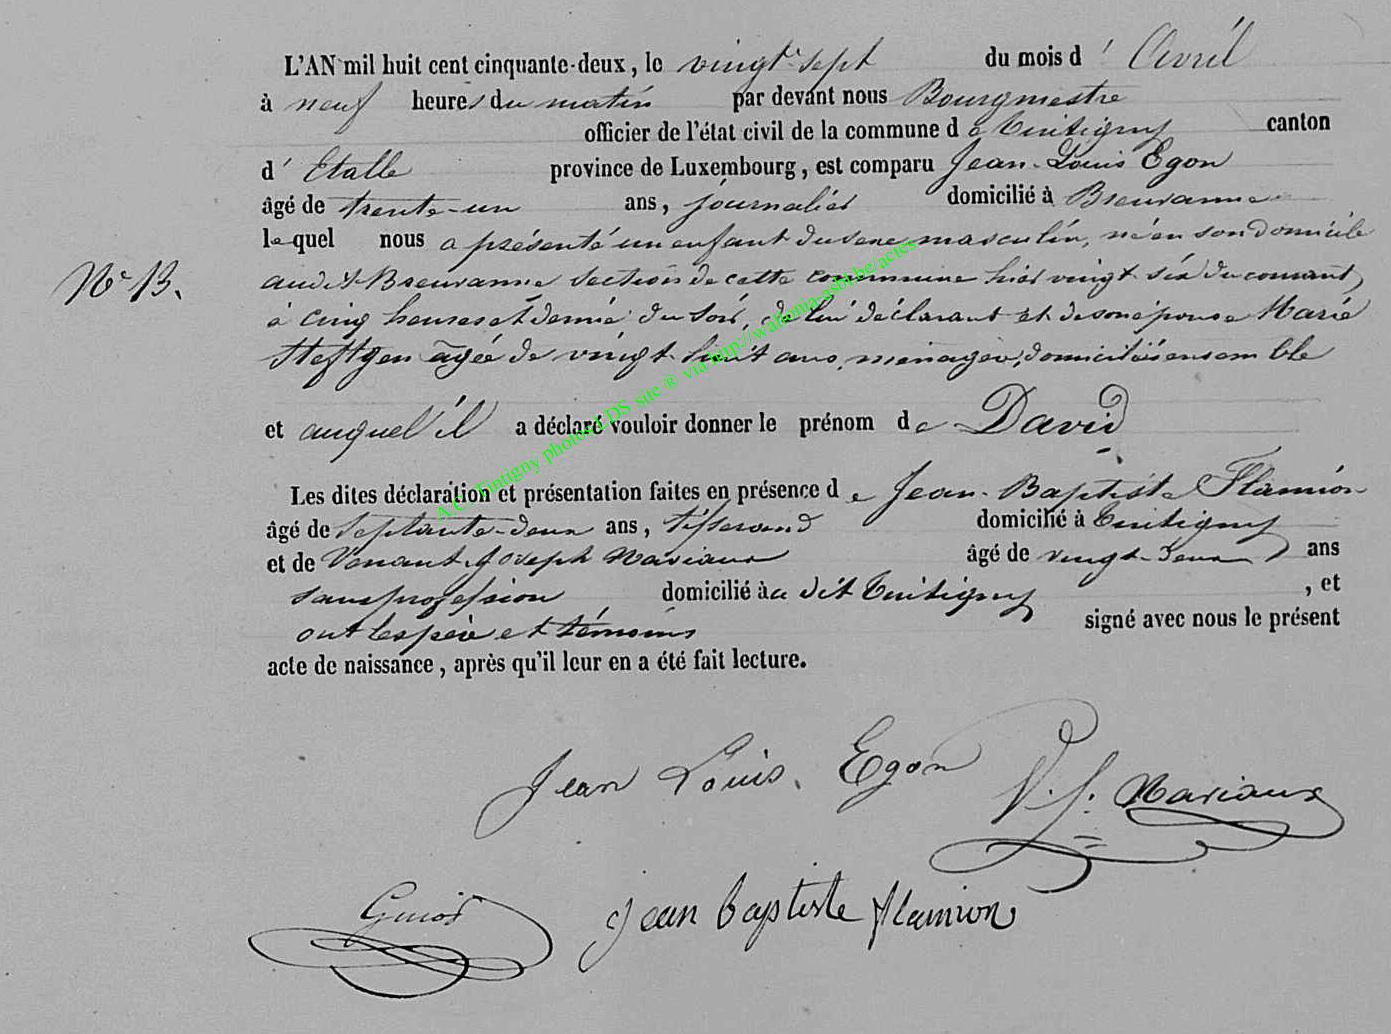 L'AN mil huit cent cinquante-deux, le vingt-sept du mois d' Avril
à neuf heures du matin par devant nous Bourgmestre
officier de l'état civil de la commune de Tintigny canton
d' Etalle province de Luxembourg, est comparu Jean-Louis Egon
âgé de trente-un ans, journalier domicilié à Breuvanne
lequel nous a présenté un enfant du sexe masculin, né en son domicile
audit Breuvanne section de cette commune hier vingt six du courant,
N° 13.
à cinq heures et demie du soir, de lui déclarant et de son épouse Marie
Heftgen âgée de vingt huit ans, ménagère, domiciliés ensemble
et auquel il a déclaré vouloir donner le prénom de David
Les dites déclaration et présentation faites en présence de Jean-Baptiste Flamion
âgé de septante-deux ans, tisserand domicilié à Tintigny
et de Venant-Joseph Mariaux âgé de vingt-deux ans
sans profession domicilié au dit Tintigny, et
ont les père et témoins signé avec nous le présent
acte de naissance, après qu'il leur en a été fait lecture.
A.C. Tintigny photos LDS suc ® via http://wallonia-asbl.be/actes
Jean Louis Egon V. J. Mariaux
Guiot jean baptiste flamion